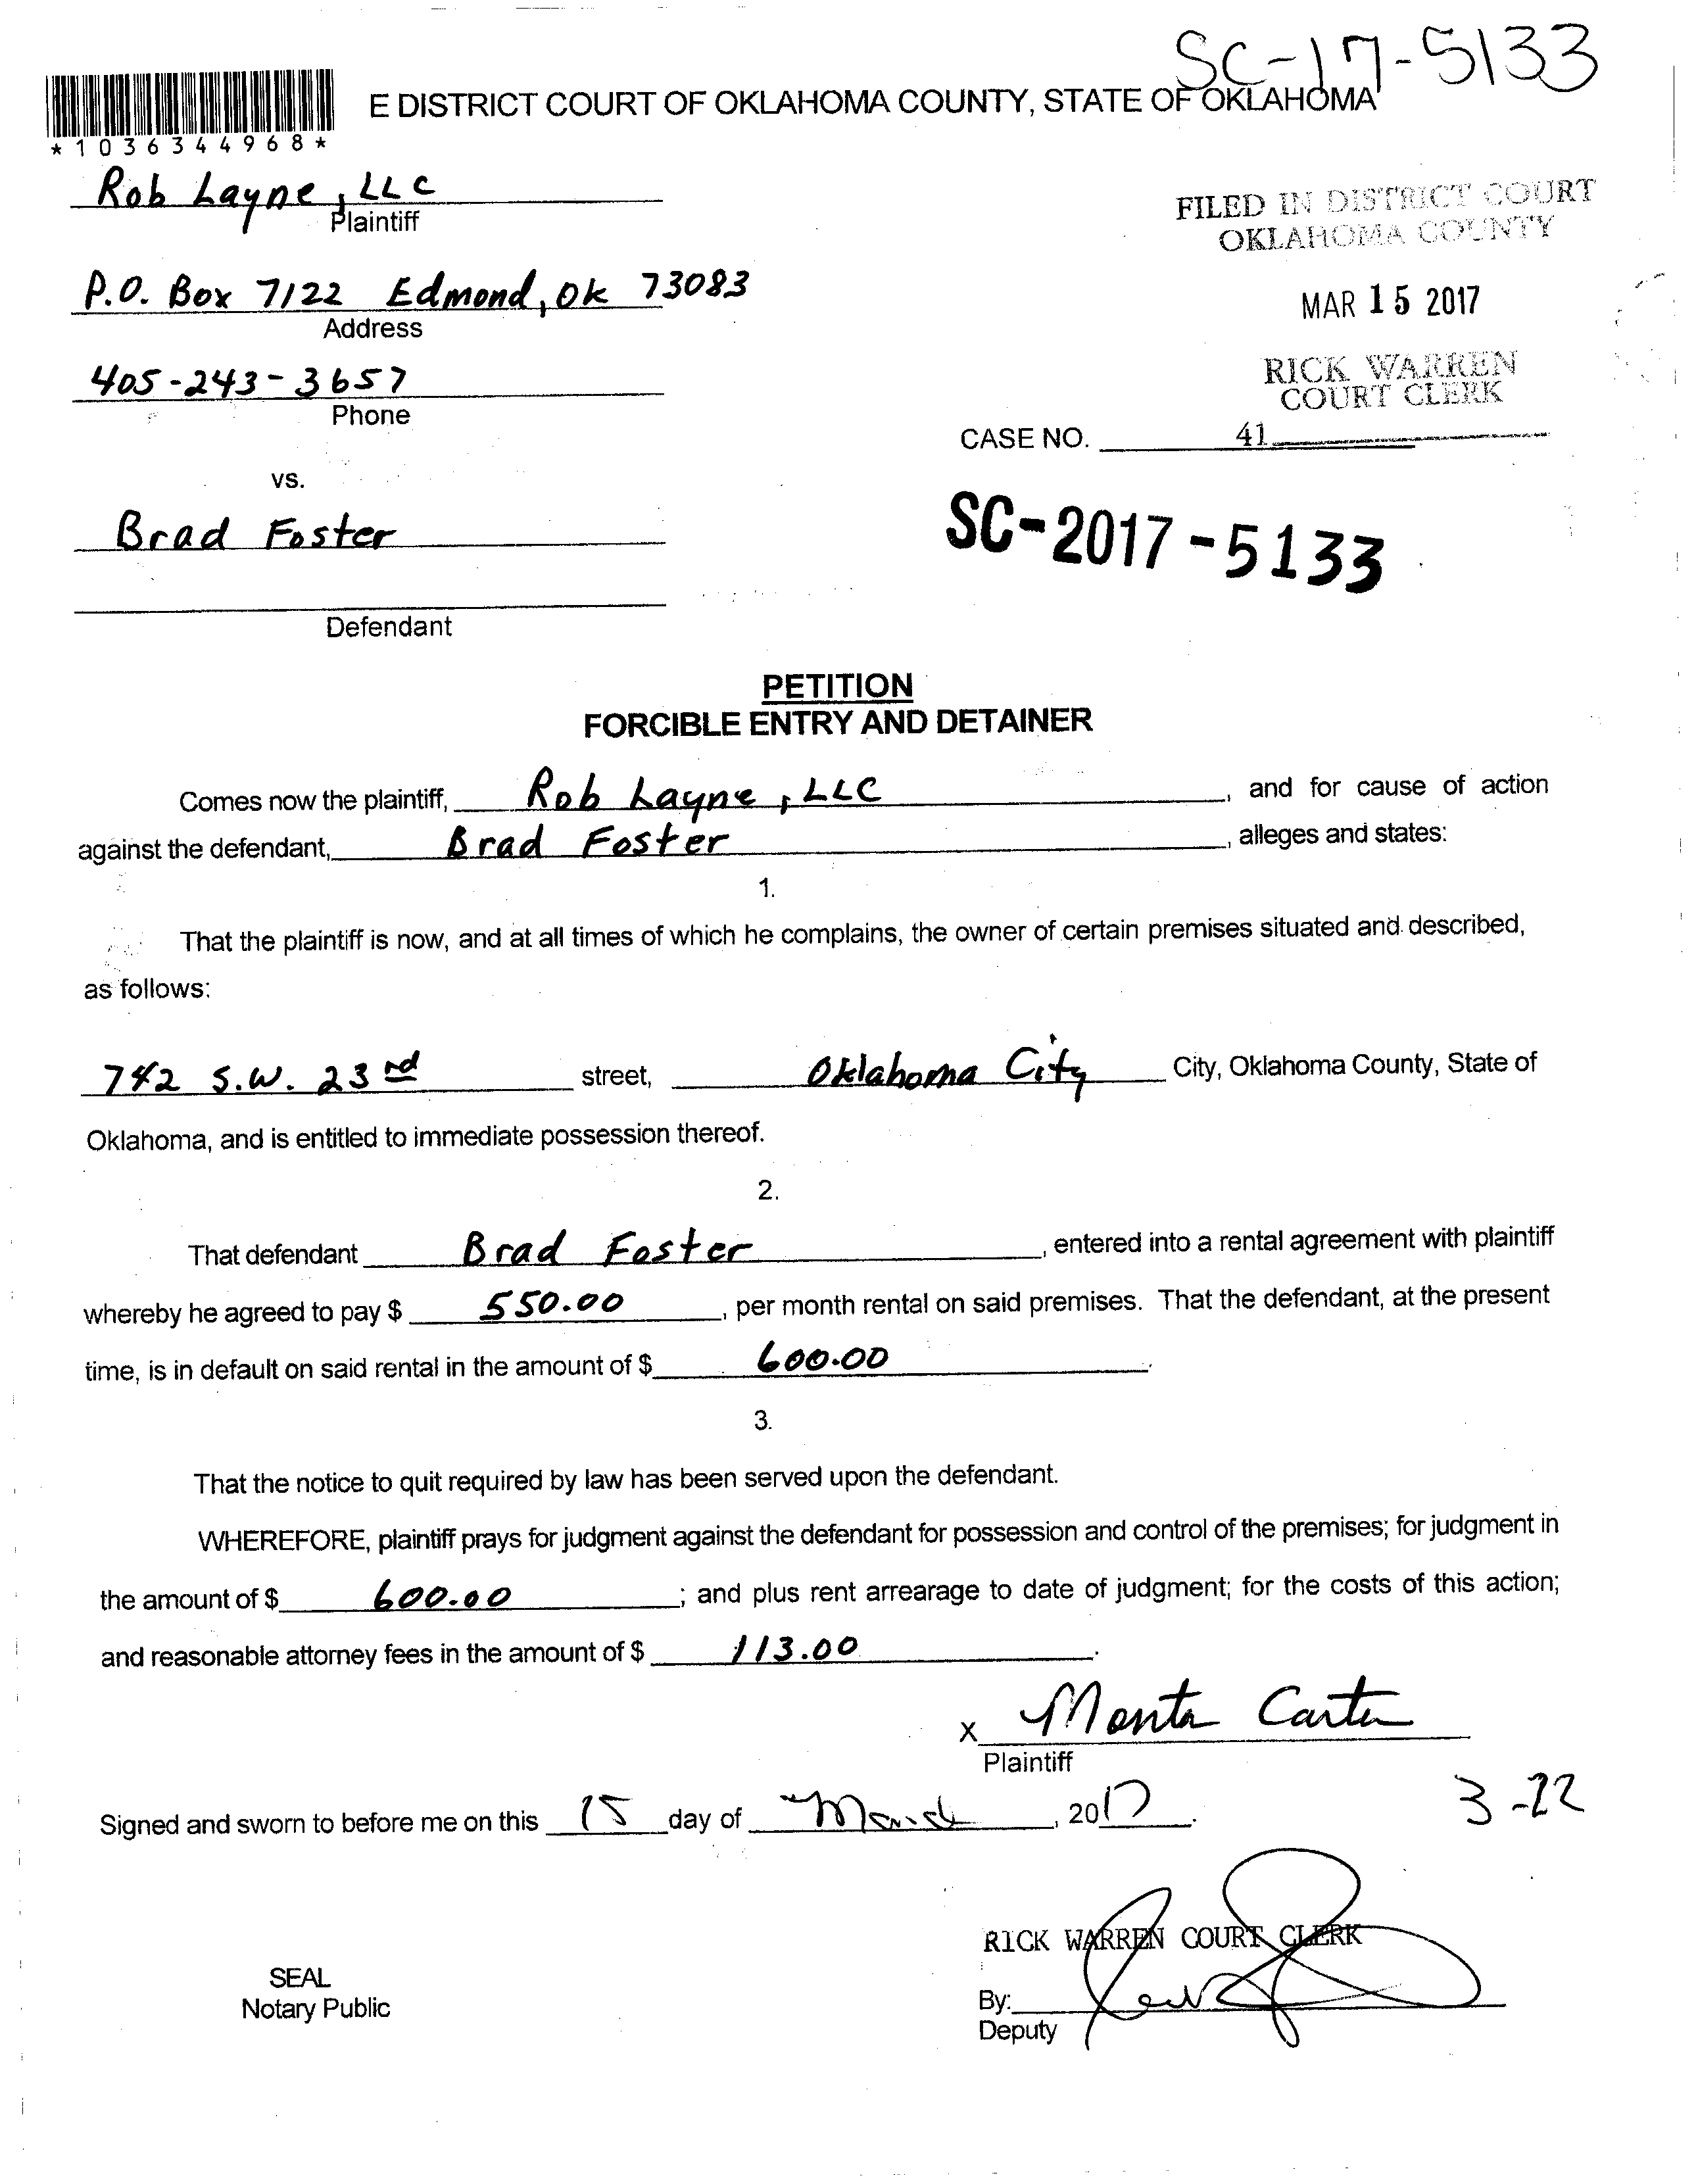 SC-17-5133
E DISTRICT COURT OF OKLAHOMA COUNTY, STATE OF OKLAHOMA
*1036344968*
Rob Layne, LLC
Plaintiff
FILED IN DISTRICT COURT
OKLAHOMA COUNTY
P.O. Box 7122 Edmond, Ok 73083
Address
MAR 15 2017
405-243-3657
Phone
RICK WARREN
COURT CLERK
CASE NO. 41
vs.
Brad Foster
SC-2017-5133
Defendant
PETITION
FORCIBLE ENTRY AND DETAINER
Comes now the plaintiff, Rob Layne, LLC, and for cause of action
against the defendant, Brad Foster, alleges and states:
1.
That the plaintiff is now, and at all times of which he complains, the owner of certain premises situated and described,
as follows:
742 S.W. 23rd street, Oklahoma City City, Oklahoma County, State of
Oklahoma, and is entitled to immediate possession thereof.
2.
That defendant Brad Foster, entered into a rental agreement with plaintiff
whereby he agreed to pay $ 550.00, per month rental on said premises. That the defendant, at the present
time, is in default on said rental in the amount of $ 600.00.
3.
That the notice to quit required by law has been served upon the defendant.
WHEREFORE, plaintiff prays for judgment against the defendant for possession and control of the premises; for judgment in
the amount of $ 600.00; and plus rent arrearage to date of judgment; for the costs of this action;
and reasonable attorney fees in the amount of $ 113.00.
x Monta Carter
Plaintiff
3-22
Signed and sworn to before me on this 15 day of March, 2017.
RICK WARREN COURT CLERK
SEAL
Notary Public
By:
Deputy